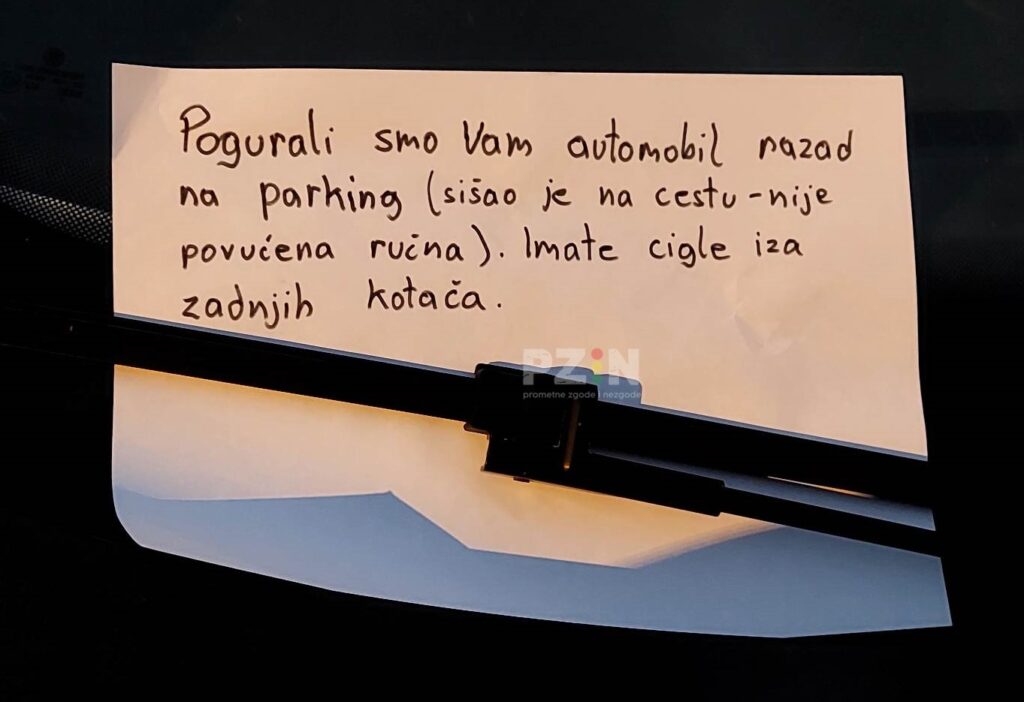 Pogurali smo Vam automobil nazad
na parking (sišao je na cestu-nije
povućena ručna). Imate cigle iza
zadnjih kotača.
PZiN
prometne zgode i nezgode